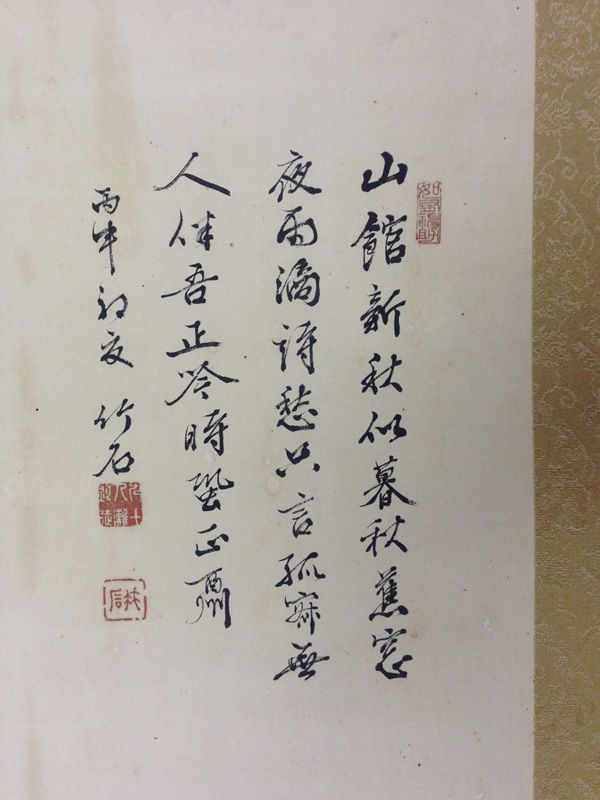 山館新秋似暮秋蕉窓
夜雨滴詩愁只言孤寂無
人伴吾正吟時蛩正酬
丙午初夏竹石